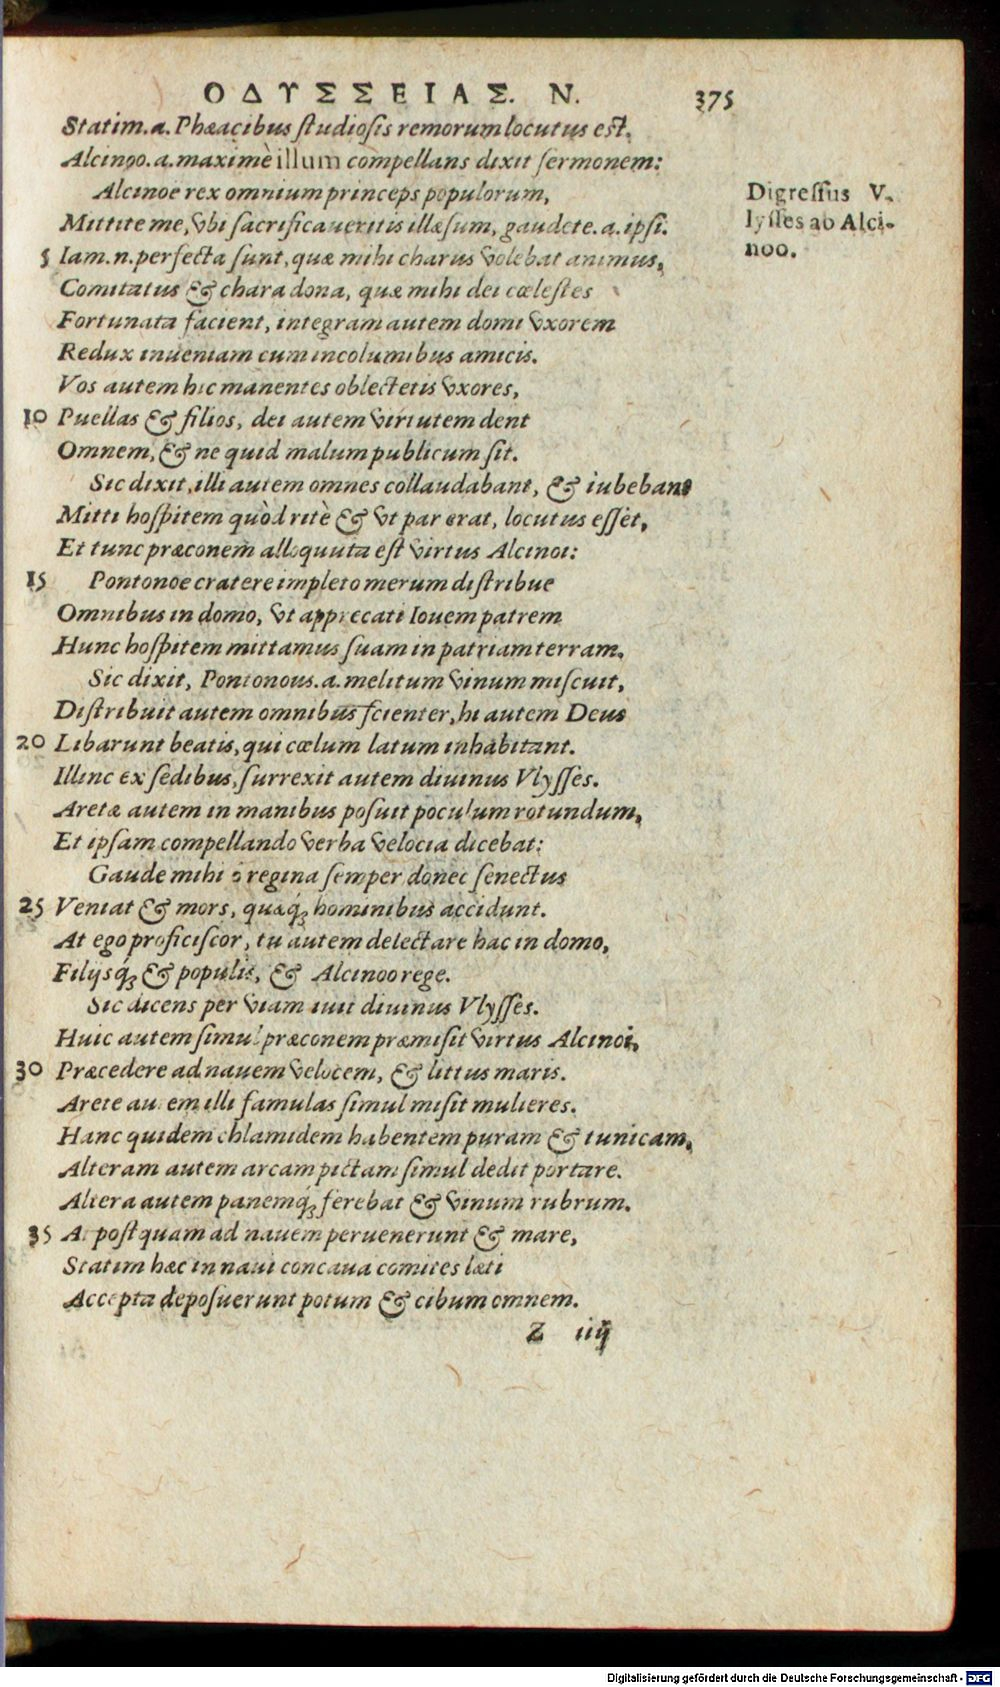 ΟΔΥΣΣΕΙΑΣ. N. 375
Statim.a. Phæacibus ſtudioſis remorum locutus eſt.
Alcinoo.a. maximè illum compellans dixit ſermonem:
Alcinoe rex omnium princeps populorum,
Mittite me, vbi ſacrificaueritis illæſum, gaudete.a. ipſi.
Digreſſus V-
lyſſes ab Alci-
noo.
5 Iam.n. perfecta ſunt, quæ mihi charus volebat animus,
Comitatus & chara dona, quæ mihi dei cœleſtes
Fortunata facient, integram autem domi vxorem
Redux inueniam cum incolumibus amicis.
Vos autem hic manentes oblectetis vxores,
10 Puellas & filios, dei autem virtutem dent
Omnem, & ne quid malum publicum ſit.
Sic dixit, illi autem omnes collaudabant, & iubebant
Mitti hoſpitem quòd ritè & vt par erat, locutus eſſet,
Et tunc præconem alloquuta eſt virtus Alcinoi:
15 Pontonoe cratere impleto merum diſtribue
Omnibus in domo, vt apprecati Iouem patrem
Hunc hoſpitem mittamus ſuam in patriam terram.
Sic dixit, Pontonous.a. melitum vinum miſcuit,
Diſtribuit autem omnibus ſcienter, hi autem Deus
20 Libarunt beatis, qui cœlum latum inhabitant.
Illinc ex ſedibus, ſurrexit autem diuinus Vlyſſes.
Aretæ autem in manibus poſuit poculum rotundum,
Et ipſam compellando verba velocia dicebat:
Gaude mihi ô regina ſemper donec ſenectus
25 Veniat & mors, quæq́; hominibus accidunt.
At ego proficiſcor, tu autem delectare hac in domo,
Filijsq́; & populis, & Alcinoo rege.
Sic dicens per viam iuit diuinus Vlyſſes.
Huic autem ſimul præconem præmiſit virtus Alcinoi,
30 Præcedere ad nauem velocem, & littus maris.
Arete autem illi famulas ſimul miſit mulieres.
Hanc quidem chlamidem habentem puram & tunicam,
Alteram autem arcam pictam ſimul dedit portare.
Altera autem panemq́; ferebat & vinum rubrum.
35 At poſtquam ad nauem peruenerunt & mare,
Statim hæc in naui concaua comites læti
Accepta depoſuerunt potum & cibum omnem.
Z iiij
Digitalisierung gefördert durch die Deutsche Forschungsgemeinschaft - DFG